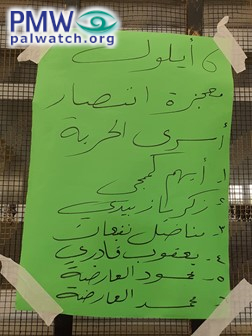 PMW
palwatch.org
6 أيلول
معجزة انتصار
أسرى الحرية
١. أيهم كممجي
٢. زكريا زبيدي
٣. مناضل نفيعات
٤. يعقوب قادري
٥. محمود العارضة
٦. محمد العارضة